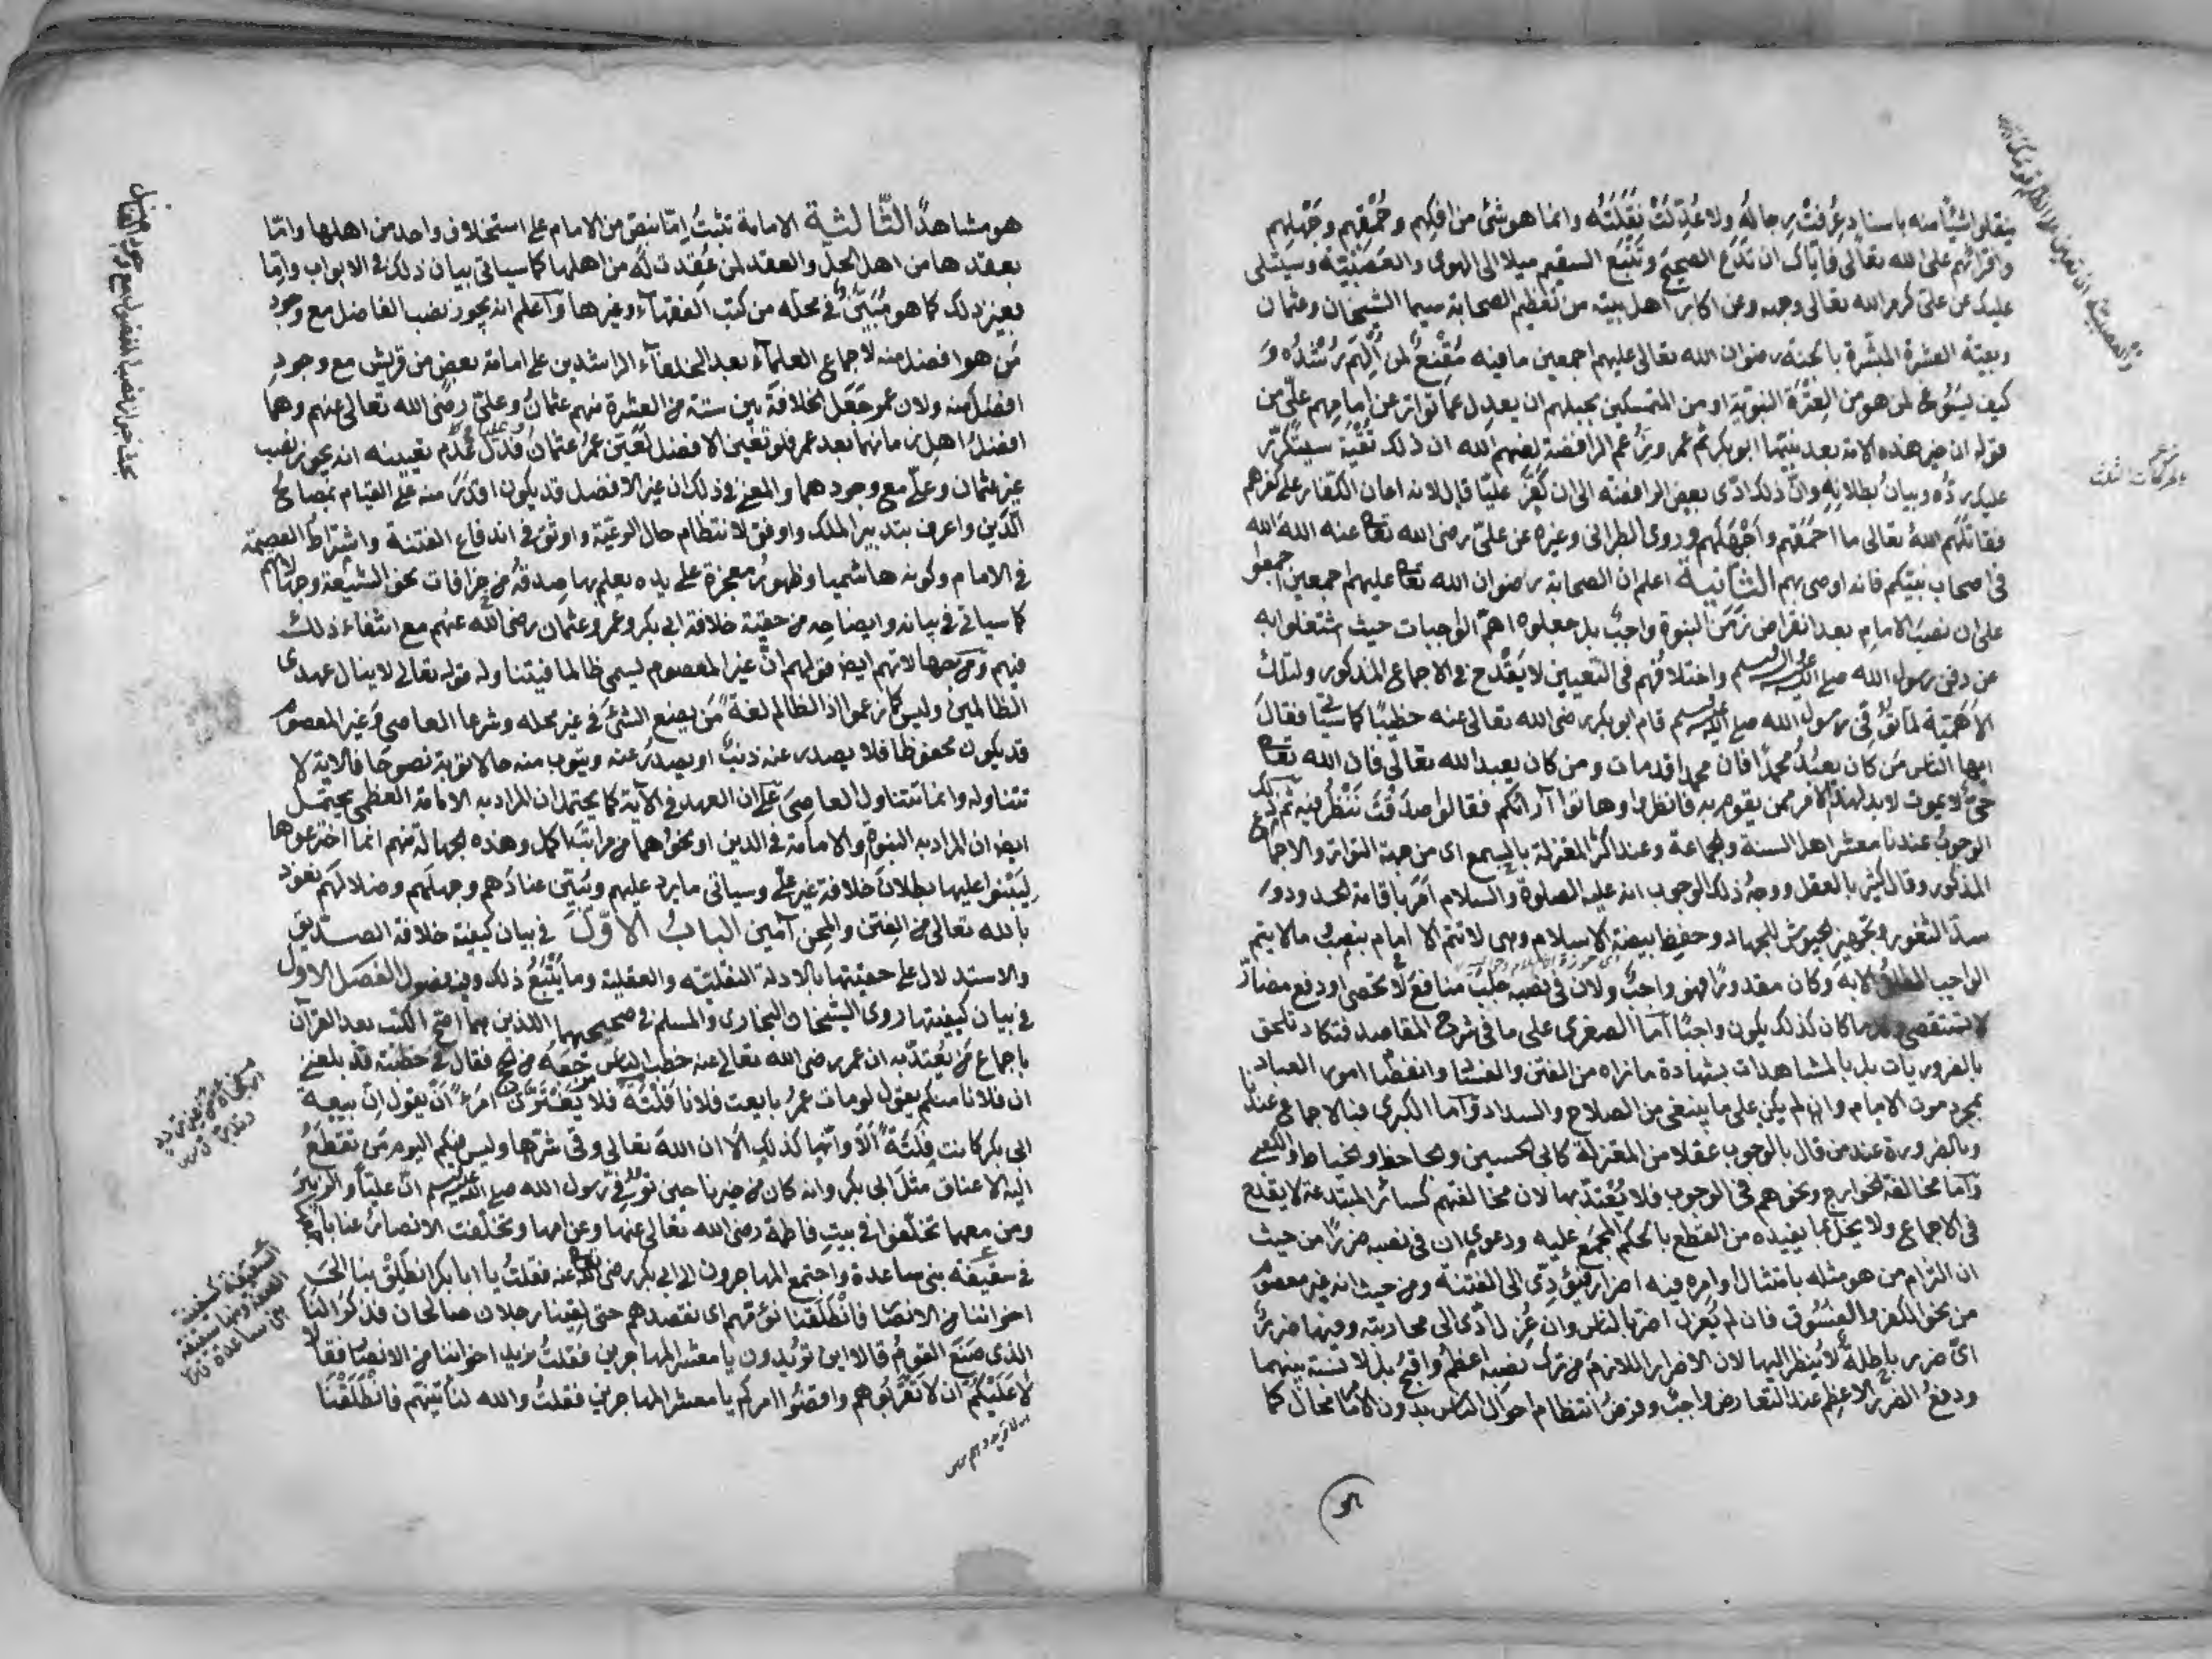 ينقلوا شيئا منه باسناد عُرفتْ رجاله ولا عُدِّلتْ نَقَلَتُه وانما هو شئ من افكهم وحُمْقِهم وجَهْلِهم
وافترائهم على الله تعالى فاياك ان تَدَع الصحيح وتتبع السقيم ميلا الى الهوى والعصبيّة وسيتلى
عليك عن علىّ كرم الله تعالى وجهه وعن اكابر اهل بيته من تعظيم الصحابة سيما الشيخان وعثمان
وبقيّة العشرة المبشّرة بالجنة رضوان الله تعالى عليهم اجمعين ما فيه مُقْنِعٌ لمن اُلْهِمَ رُشْدُه و
كيف يسُوغ لمن هو من العِتْرَة النبويّة او من المتمسكين بحبلهم ان يعدل عما تواتر عن امامهم علىّ من
قوله ان خير هذه الامة بعد نبيّها ابو بكر ثم عمر وزَعْم الرافضة لعنهم الله ان ذلك تُقْيَة سيتكرّر
عليك ردّه وبيانُ بطلانِه وانّ ذلك ادّى بعض الرافضة الى ان كَفَّر عليّا قال لانه اعان الكفار على كفرهم
فقاتلهم اللهُ تعالى ما احمقهم واجْهَلَهم وروى الطبرانى وغيره عن علىّ رضى الله تعا عنه الله الله
فى اصحاب نبيّكم فانه اوصى بهم الثَّانية اعلم ان الصحابة رضوان الله تعا عليهم اجمعين اجمعوا
على ان نصبَ الامامِ بعد انقراض زَمَن النبوة واجبٌ بل جعلوه اهمّ الواجبات حيث اشتغلوا به
عن دفن رسول الله صلى الله عليه وسلم واختلافُهم فى التعيين لا يَقْدح فى الاجماع المذكور ولتلك
الاهميّة لما تُوُفّى رسول الله صلى الله عليه وسلم قام ابو بكر رضى الله تعالى عنه خطيبًا كما سيأتى فقال
ايها الناس مَن كان يعبُدُ محمّدًا فان محمدا قد مات ومن كان يعبد الله تعالى فان الله تعا
حىّ لا يموت لا بد لهذا الامر ممن يقوم به فانظروا وهاتوا آرائكم فقالوا صدقتَ نَنْظُر فيه ثم ذلك
الوجوبُ عندنا معشر اهل السنة والجماعة وعند اكثر المعتزلة بالسمع اى من جهة التواتر والاجماع
المذكور وقال كثير بالعقل ووجهُ ذلك الوجوب انه عليه الصلوة والسلام اَمَرَ باقامة الحدود و
سدّ الثغور وتجهيز الجيوش للجهاد وحفظ بيضة الاسلام وهى لا تتمّ الا بامام بنصبُ ما لا يتم
الواجب المطلق الا به وكان مقدورًا فهو واجبٌ ولان فى نصبه جلبَ منافعَ لا تحصى ودفع مضارّ
لا تستقصى وكل ما كان كذلك يكون واجبًا امّا الصغرى على ما فى شرح المقاصد فتكاد تلحق
بالضروريات بل بالمشاهدات بشهادة ما نراه من الفتن والفساد وانفصام امور العباد
بمجرد موت الامام وان لم يكن على ما ينبغى من الصلاح والسداد وامّا الكبرى فبالاجماع عندنا
وبالضرورة عند من قال بالوجوب عقلا من المعتزلة كأبى الحسين والجاحظ والخياط والكعبى
وامّا مخالفة الخوارج ونحوهم فى الوجوب فلا يُعْتدّ بها لان مخالفتهم كسائر المبتدعة لا يقدح
فى الاجماع ولا يخلّ بما يفيده من القطع بالحكم المجمَع عليه ودعوى ان فى نصبه ضررًا من حيث
ان الزام من هو مثله بامتثال اوامره فيه اضرار فيؤدّى الى الفتنة ومن حيث انه غير معصوم
من نحو الكفر والفسُوق فان لم يُعزل اضرّ بالناس وان عُزِل ادّى الى محاربته وفيها ضررٌ
اىّ ضرر باطلةٌ لا يُنظر اليها لان الاضرار اللازم من ترك نصبه اعظمُ واقبح بل لا نسبة بينهما
ودفعُ الضرر الاعظم عند التعارض واجبٌ وفرضُ انتظام احوال الناس بدون الامام محال كما
هو مشاهدٌ الثَّالثية الامامة تثبتُ اِمّا بنصّ من الامام على استخلاف واحد من اهلها وامّا
بعقدها من اهل الحلّ والعقد لمن عُقِدت لَه من اهلها كما سيأتى بيان ذلك فى الابواب وامّا
بغير ذلك كما هو مُبَيَّنٌ فى محلّه من كتب الفقهآء وغيرها وآعلم انه يجوز نصب الفاضل مع وجود
مَن هو افضل منه لاجماع العلمآء بعد الخلفآء الراشدين على امامة بعضٍ من قريش مع وجودِ
افضلَ منه ولان عمر جَعَل الخلافةَ بين ستة من العشرة منهم عثمانُ وعلىّ رضى الله تعالى عنهم وهما
افضلُ اهل زمانهما بعد عمر فلو تعيّن الافضل لعيّن عمرُ عثمان فدَلّ عدم تعيينه انه يجوز نصب
غير عثمان وعلى مع وجودهما والمعنى فى ذلك ان غير الافضل قد يكون اقدر منه على القيام بمصالح
الدّين واعرف بتدبير الملك واوفق لانتظام حال الرعيّة واوثق فى اندفاع الفتنة واشتراط العصمة
فى الامام وكونه هاشميا وظهورُ معجزة على يده يعلم بها صدقُه من خرافات نحو الشيعة وجهالاتهم
كما سيأتى فى بيانه وايضاحه من حقيّة خلافة ابى بكر وعمر وعثمان رضى الله عنهم مع انتفاء ذلك
فيهم ومن جهالاتهم ايضا قولهم انّ غير المعصوم يسمى ظالما فيتناوله قوله تعالى لا ينال عهدى
الظالمين وليس كما زعموا اذ الظالم لغةً مَن يضع الشئ فى غير محله وشرعا العاصى وغير المعصوم
قد يكون محفوظا فلا يصدر عنه ذنبٌ او يصدر عنه ويتوب منه حالا توبة نصوحًا فالآية لا
تتناوله وانما تتناول العاصِىَ على ان العهد فى الآية كما يحتمل ان المراد به الامامة العظمى يحتمل
ايضا ان المراد به النبوة او الامامة فى الدين او نحوهما من مراتب الكمال وهذه الجهالة منهم انما اخترعوها
ليَبْنُوا عليها بطلانَ خلافة غير علىّ وسيأتى ما يرد عليهم ويُبَيّن عنادَهم وجهلَهم وضلالَهم نعوذ
بالله تعالى من الفِتَن والمِحن آمين البابُ الاوّلُ فى بيان كيفية خلافة الصدّيق
والاستدلال على حقيّتها بالادلة النقليّة والعقلية وما يَتْبَعُ ذلك وفيه فصول الفصل الاول
فى بيان كيفيتها روى الشيخان البخارى والمسلم فى صحيحيهما اللذين هما اصح الكتب بعد القرآن
باجماع مَن يُعْتدّ به ان عمر رضى الله تعالى عنه خطب الناس مَرْجِعَهُ من الحج فقال فى خطبته قد بلغنى
ان فلانا منكم يقول لو مات عمرُ بايعت فلانا فَلْتَة فلا يَغْتَرَّنّ امرءٌ اَنْ يقول اِنّ بيعة
ابى بكر كانت فَلْتَةً اَلا وانّها كذلك الا ان اللهَ تعالى وقى شرّها وليس فيكم اليوم مَن تقطعُ
اليه الاعناق مثلَ ابى بكر وانه كان من خيرنا حين تُوُفّى رسول الله صلى الله عليه وسلم انّ عليّا والزبيرَ
ومن معهما تخلّفوا فى بيتِ فاطمة رضى الله تعالى عنها وعن امها وتخلّفت الانصارُ عنا باسرهم
فى سقيفة بنى ساعدة واجتمع المهاجرون الى ابى بكر رضى الله تعا عنه فقلتُ يا ابا بكر انطَلِقْ بنا الى
اخواننا من الانصار فانْطَلَقْنا نَؤُمّهم اى نقصدهم حتى لقِينا رجلان صالحان فذكرا لنا
الذى صَنَعَ القومُ قالا اين تريدون يا معشر المهاجرين فقلتُ نريد اخواننا من الانصار فقالا
لا عَلَيْكُم ان لا تَقْرَبُوهم واقضُوا امركم يا معشر المهاجرين فقلتُ والله لنأتينّهم فانْطَلَقْنا